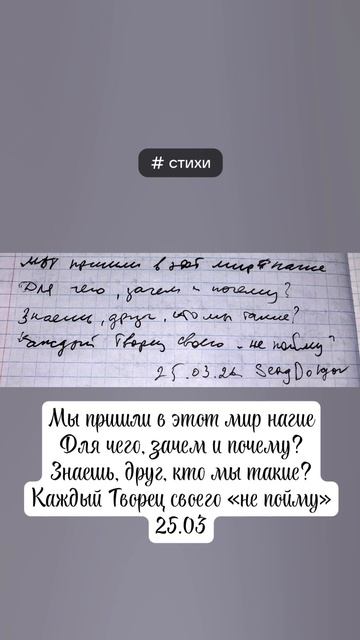 # стихи
Мы пришли в этот мир нагие
Для чего, зачем и почему?
Знаешь, друг, кто мы такие?
Каждый Творец своего - не пойму?
25.03.26
Мы пришли в этот мир нагие
Для чего, зачем и почему?
Знаешь, друг, кто мы такие?
Каждый Творец своего «не пойму»
25.03